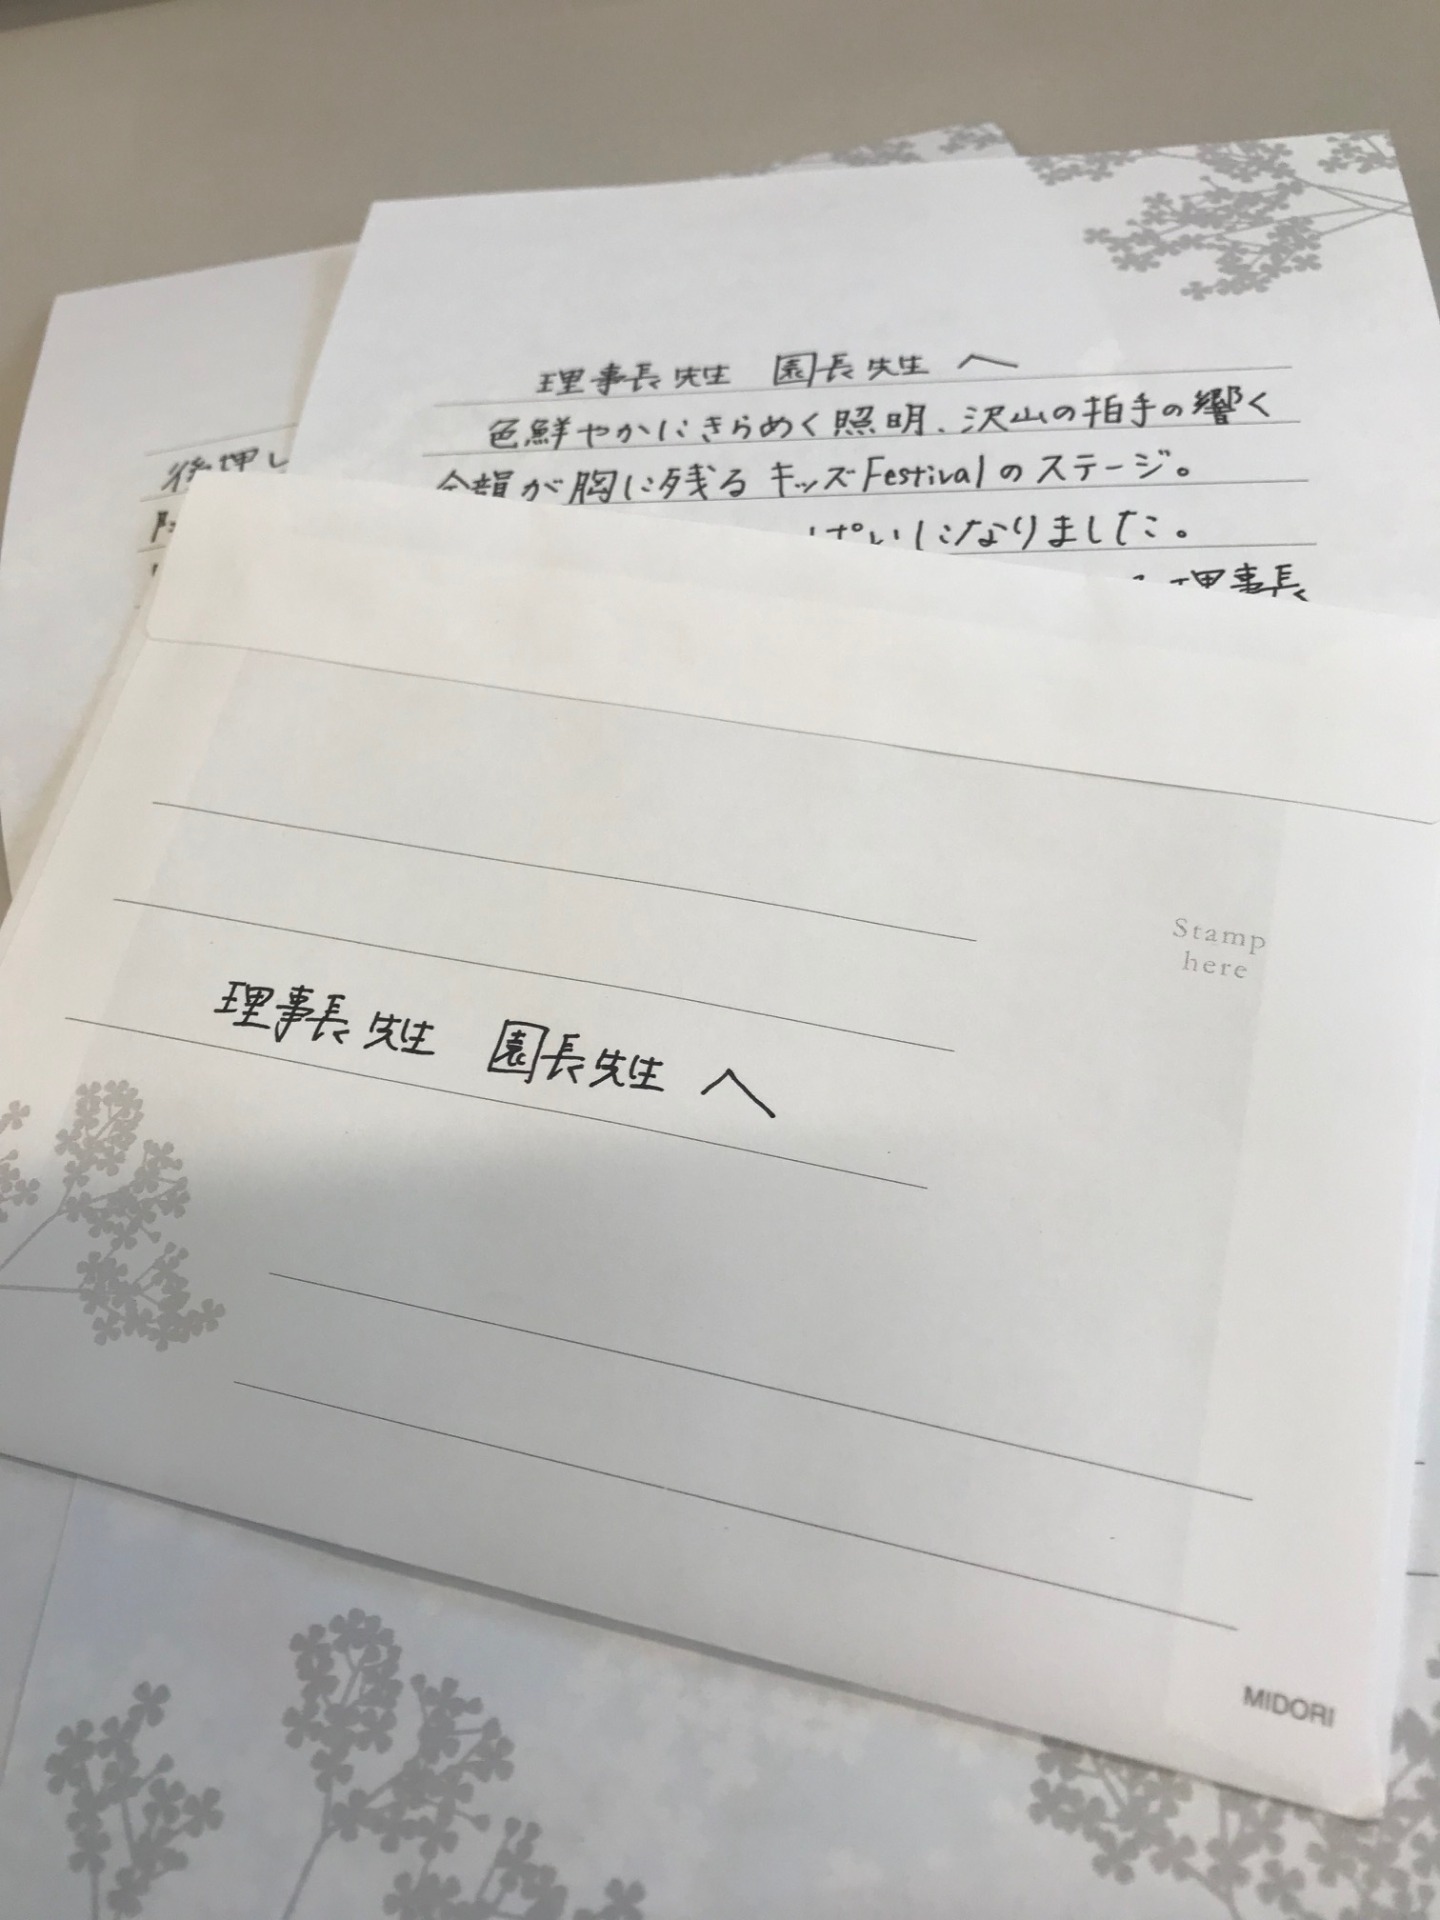 理事長先生 園長先生 へ
色鮮やかにきらめく照明、沢山の拍手の響く
余韻が胸に残るキッズFestivalのステージ。
ぱいになりました。
理事長
後押し
Stamp
here
理事長先生 園長先生 へ
MIDORI